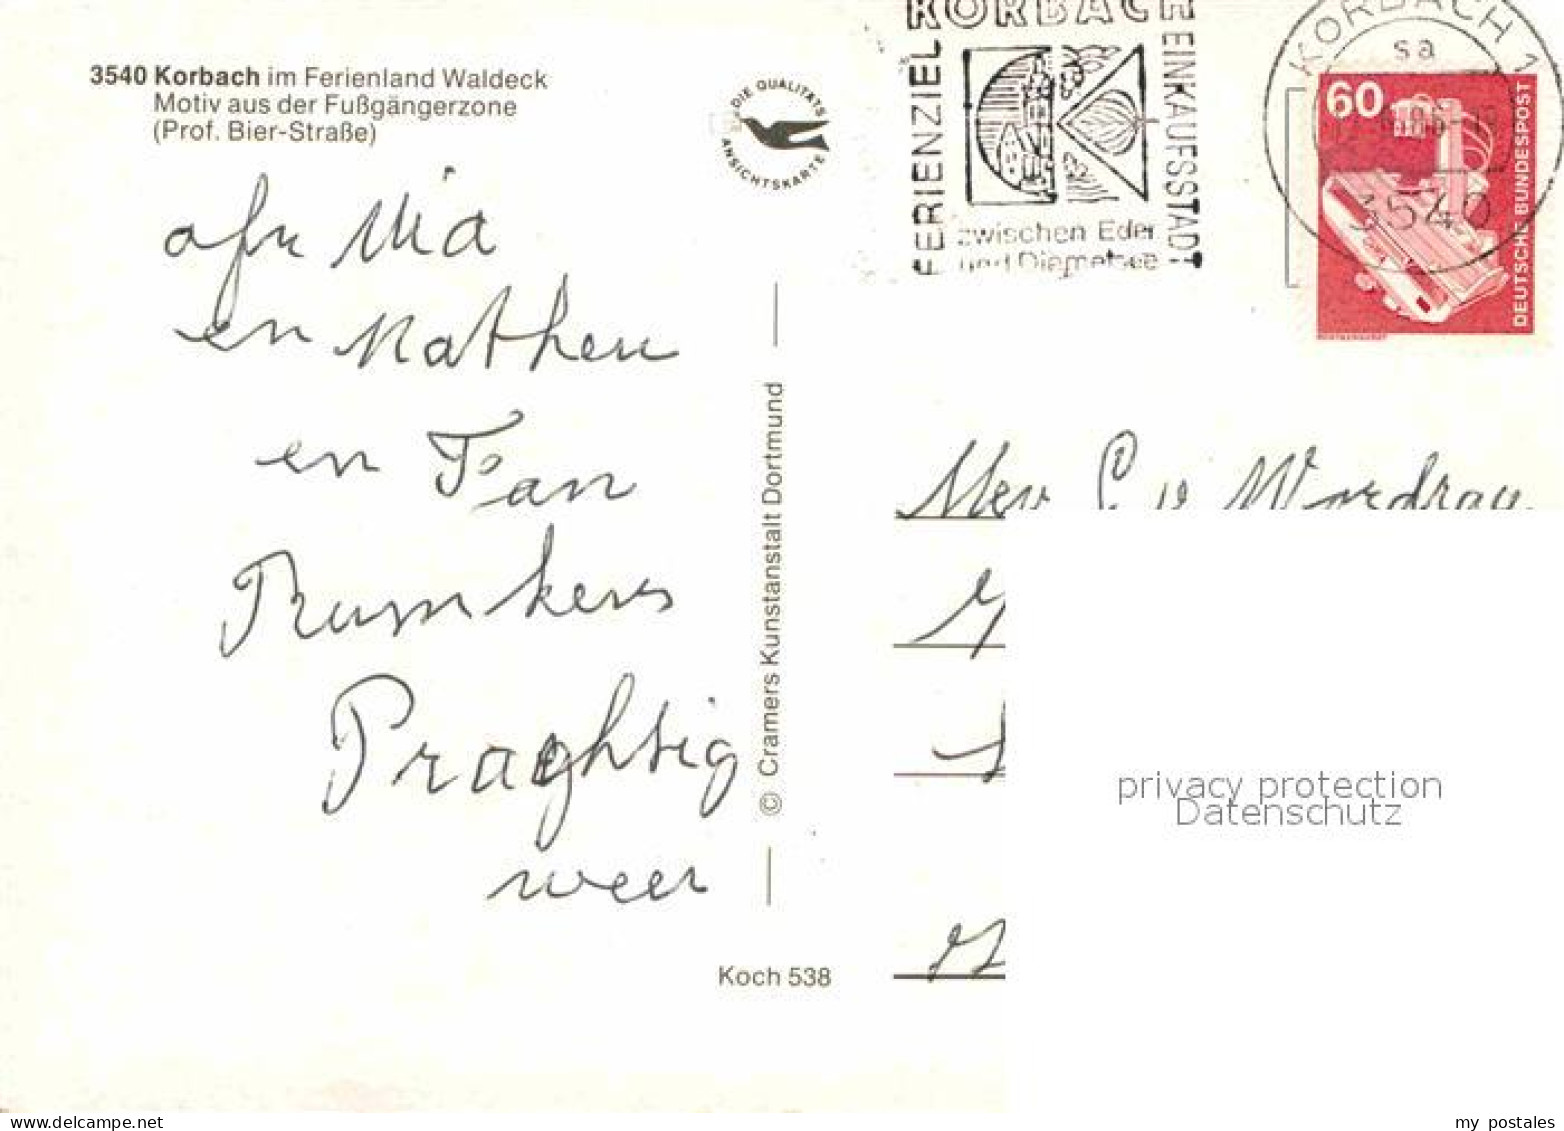 3540 Korbach im Ferienland Waldeck
Motiv aus der Fußgängerzone
(Prof. Bier-Straße)
DIE QUALITÄTS
ANSICHTSKARTE
KORBACH
FERIENZIEL
EINKAUFSSTADT
zwischen Eder
und Diemelsee
KORBACH 1
sa
3540
60
DEUTSCHE BUNDESPOST
Mia
en Matheu
en Fan
Rumkers
Praqhtig
weer
© Cramers Kunstanstalt Dortmund
Koch 538
Mev
privacy protection
Datenschutz
ansichtskarten-center.de
my postales